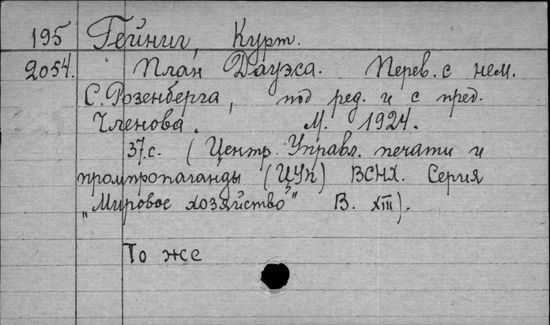 195 Гейниг, Курт.
2054. План Дауэса. Перев. с нем.
С. Розенберга, под ред. и с пред.
Членова. М. 1924.
37.с. (Центр. Управл. печати и
промпропаганды (ЦУК) ВСНХ. Серия
"Мировое хозяйство" В. XIII).
То же